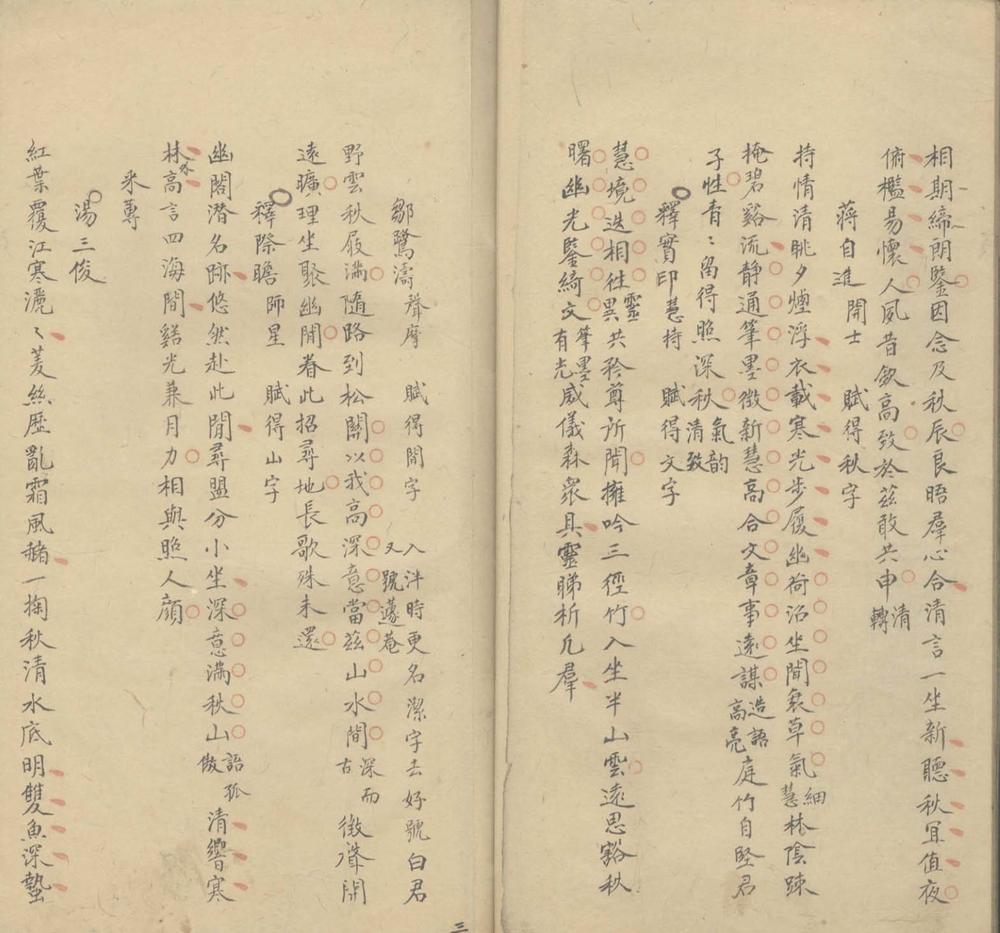 相期締朗鑒因念及秋辰良晤羣心合清言一坐新聽秋宜值夜
俯檻易懷人夙昔欽高致於茲敢共申清轉
蔣自進開士　賦得秋字
持情清眺夕煙浮衣載寒光步履幽荷沼坐間衰草氣細慧林陰踈
掩碧谿流靜通筆墨徵新慧高合文章事遠謀造語高亮庭竹自堅君
子性青〻留得照深秋氣韵清致
釋實印慧持　賦得文字
慧境迭相徃靈異共矜尊所聞擁吟三徑竹入坐半山雲遠思豁秋
曙幽光鑒綺文筆墨有光威儀森衆具靈睇析凡羣
鄒鷺濤聲摩　賦得閒字　入泮時更名潔字去好號白君又號蘧菴
野雲秋屐滿隨路到松關以我高深意當茲山水間深而古徵聲開
遠曠理坐聚幽閒眷此招尋地長歌殊未還
釋際瞻師星　賦得山字
幽閣潛名跡悠然赴此閒尋盟分小坐深意滿秋山語孤傲清響寒
林外高言四海間谿光兼月力相與照人顏
釆蓴
湯三俊
紅葉覆江寒灑〻菱絲歷亂霜風赭一掬秋清水底明雙魚深蟄
三